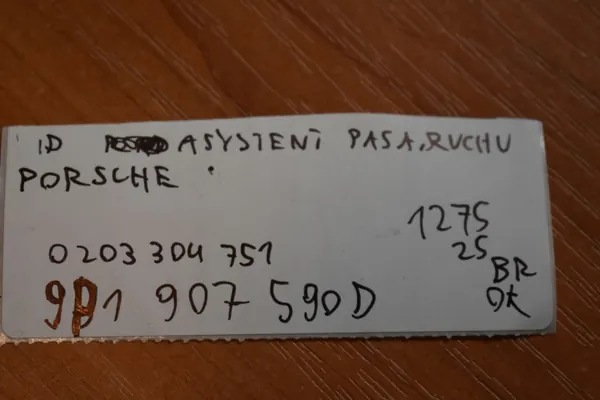 ID ASYSTENT PASA RUCHU
PORSCHE
1275
0203 304 751
25
BR
OK
9P1 907 590D